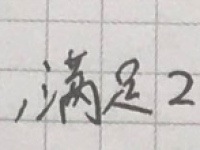 ,满足2